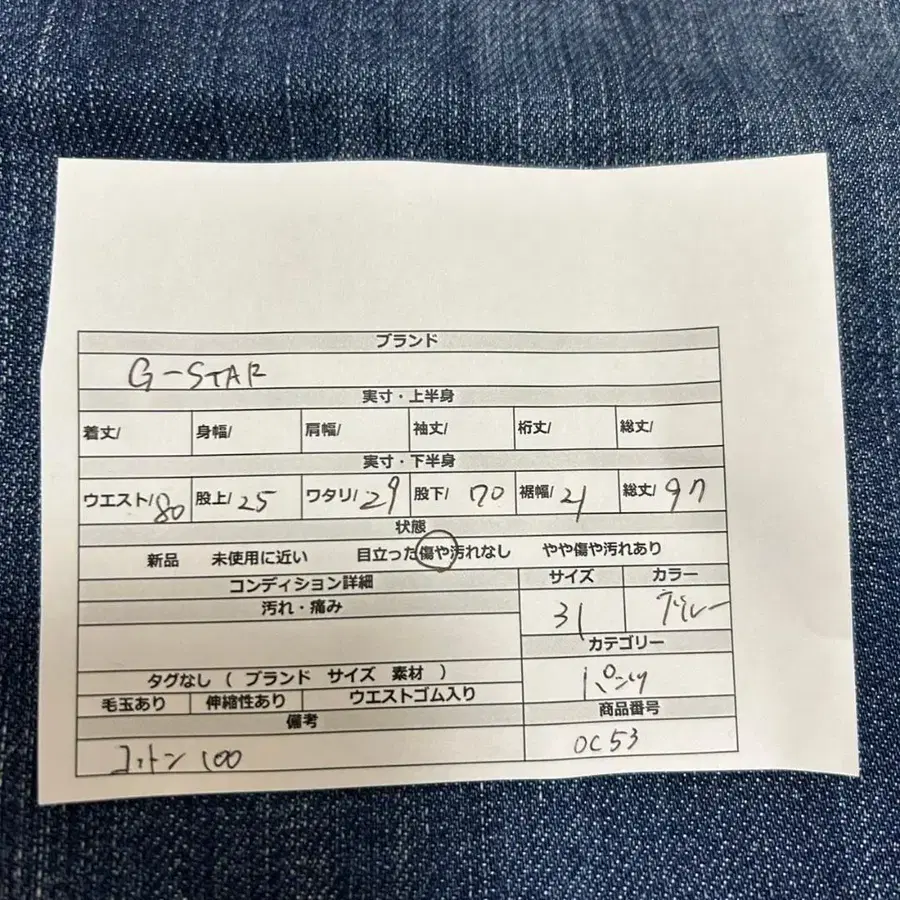 ブランド
G-STAR
実寸・上半身
着丈/ 身幅/ 肩幅/ 袖丈/ 裄丈/ 総丈/
実寸・下半身
ウエスト/80 股上/25 ワタリ/29 股下/70 裾幅/21 総丈/97
状態
新品 未使用に近い 目立った傷や汚れなし やや傷や汚れあり
コンディション詳細 サイズ カラー
汚れ・痛み 31 ブルー
カテゴリー
タグなし ( ブランド サイズ 素材 ) パンツ
毛玉あり 伸縮性あり ウエストゴム入り 商品番号
備考 OC53
コットン 100